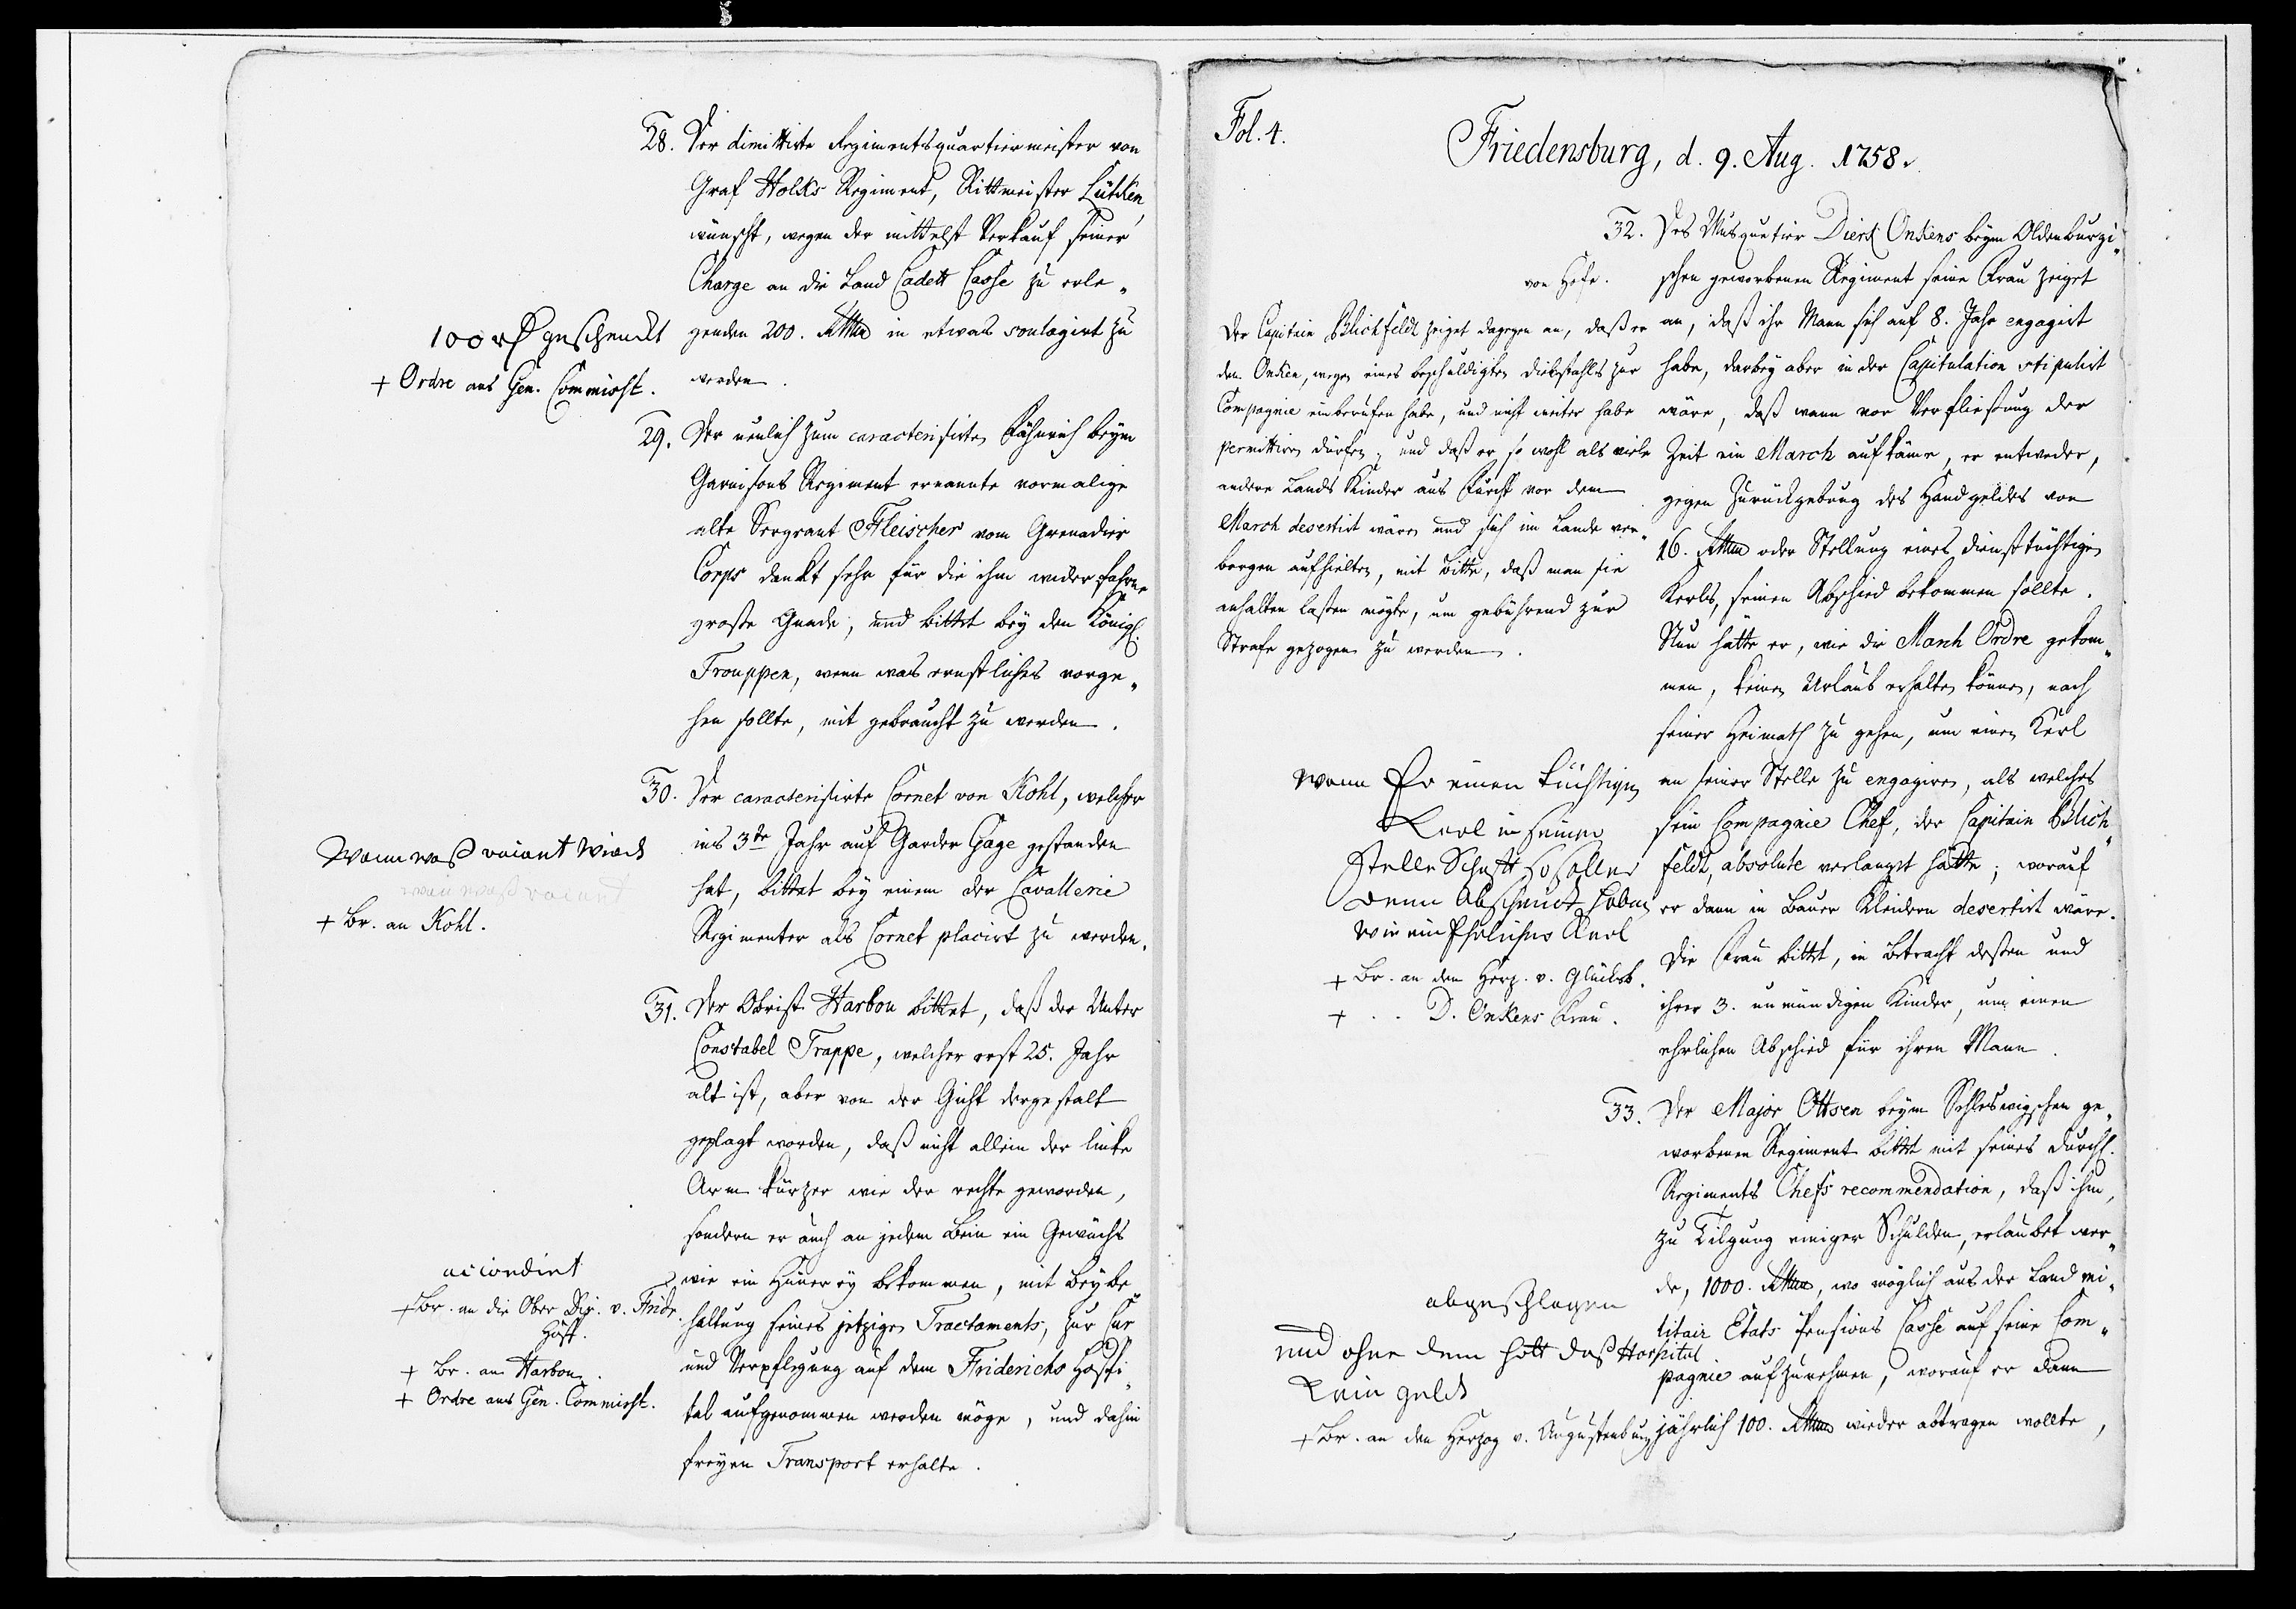 28. Der dimittirte Regimentsquartiermeister von
Graf Holcks Regiment, Rittmeister Lütken,
wünscht, wegen der mittelst Verkauf seiner
Charge an die Land Cadett Casse zu erle„
genden 200. Rthlr in etwas soulagirt zu
werden.
100 rf geschenckt
+ Ordre ans Gen. Commisst.
29. Der neulich zum caracterisirten Fähnrich beym
Garnisons Regiment ernannte vormalige
alte Sergeant Fleischer vom Grenadier
Corps dankt sehr für die ihm widerfahrne
große Gnade, und bittet bey den Königl.
Trouppen, wenn was ernstliches vorge„
hen sollte, mit gebraucht zu werden.
30. Der caracterisirte Cornet von Kohl, welcher
ins 3te Jahr auf Garder Gage gestanden
hat, bittet bey einem der Cavallerie
Regimenter als Cornet placirt zu werden.
Wann waß vaicant wird
wan waß vaicant
+ Br. an Kohl.
31. Der Obrist Harbou bittet, daß der Unter
Constabel Trappe, welcher erst 25. Jahr
alt ist, aber von der Gicht dergestalt
geplagt worden, daß nicht allein der linke
Arm kürzer wie der rechte geworden,
sondern er auch an jedem Bein ein Gewächs
wie ein Hüner ey bekommen, mit Beybe„
haltung seines jetzigen Tractaments, zur Cur
und Verpflegung auf dem Friderichs Hospi„
tal aufgenommen werden möge, und dahin
freyen Transport erhalte.
accordirt
+ Br. an die Ober Dir. v. Fridr.
Hosp.
+ Br. an Harbou.
+ Ordre ans Gen. Commisst.
Fol. 4.
Friedensburg, d. 9. Aug. 1758.
32. Des Musquetier Dierk Onkens beym Oldenburgi„
schen geworbenen Regiment seine Frau zeiget
an, daß ihr Mann sich auf 8. Jahr engagirt
habe, darbey aber in der Capitulation stipulirt
wäre, daß wann vor Verfließung der
Zeit ein March aufkäme, er entweder,
gegen Zurückgebung des Handgeldes von
16. Rthlr oder Stellung eines diensttüchtigen
Kerls, seinen Abschied bekommen sollte.
Nun hätte er, wie die March Ordre gekom„
men, keinen Urlaub erhalten können, nach
seiner Heimath zu gehen, um einen Kerl
an seiner Stelle zu engagiren, als welches
sein Compagnie Chef, der Capitain Blich„
feldt, absolute verlanget hätte; worauf
er dann in Bauer Kleidern desertirt wäre.
Die Frau bittet, in Betracht dessen und
ihrer 3. unmündigen Kinder, um einen
ehrlichen Abschied für ihren Mann.
von Hofe.
Der Capitain Blichfeldt zeiget dagegen an, daß er
den Onken, wegen eines beschuldigten Diebstahls zur
Compagnie einberufen habe, und nicht weiter habe
permittiren dürfen, und daß er so wohl als viele
andere Lands Kinder aus Furcht vor dem
March desertirt wären und sich im Lande ver„
borgen aufhielten, mit Bitte, daß man sie
anhalten lassen mögte, um gebührend zur
Strafe gezogen zu werden.
Wann Er einen tüchtigen
Kerl in seiner
Stelle Schaft so soll er
denn Abscheidt haben
wie ein Ehrliches Kerl
+ Br. an den Herz. v. Glücksb.
+ . . D. Onkens Frau.
33. Der Major Ottsen beym Schleswigschen ge„
worbenen Regiment bittet mit seines Durchl.
Regiments Chefs recommendation, daß ihm,
zu Tilgung einiger Schulden, erlaubet wer„
de, 1000. Rthlr, wo möglich aus der Land mi„
litair Etats Pensions Casse auf seine Com„
pagnie aufzunehmen, worauf er dann
jährlich 100. Rthlr wieder abtragen wollte,
abgeschlagen
und ohne dem hatt daß Hospital
Kein geldt
+ Br. an den Herzog v. Augustenburg